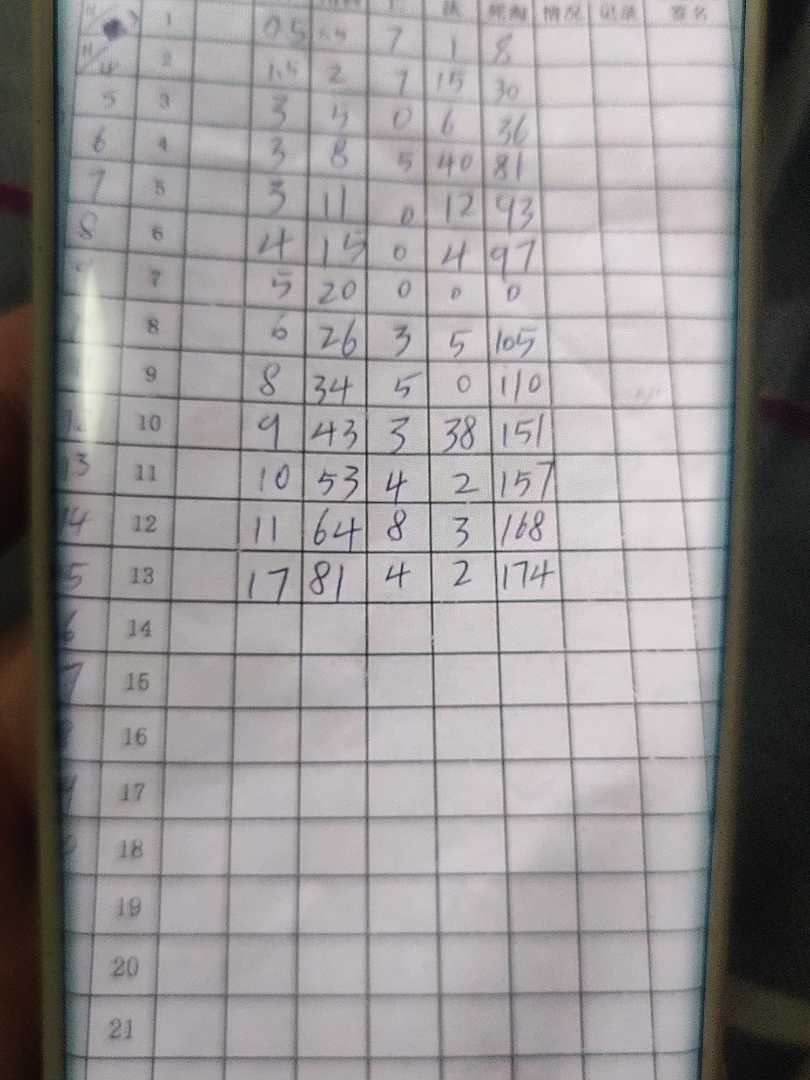 汰 死淘 情况 记录 签名
1 0.5 0.5 7 1 8
2 1.5 2 7 15 30
5 3 3 5 0 6 36
6 4 3 8 5 40 81
7 5 3 11 0 12 93
8 6 4 15 0 4 97
7 5 20 0 0 0
8 6 26 3 5 105
9 8 34 5 0 110
12 10 9 43 3 38 151
13 11 10 53 4 2 157
14 12 11 64 8 3 168
5 13 17 81 4 2 174
6 14
7 15
8 16
9 17
0 18
19
20
21